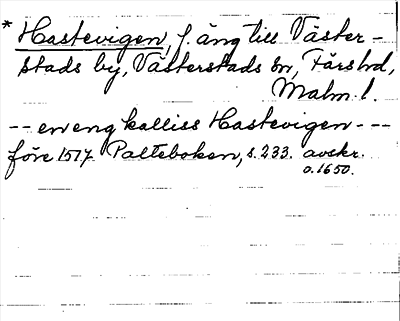 * Hastevigen, f. äng till Väster-
stads by, Västerstads sn, Färs hd,
Malm. l.
-- en eng kalliss Hastevigen ---
före 1517 Palteboken, s. 233. avskr.
o. 1650.